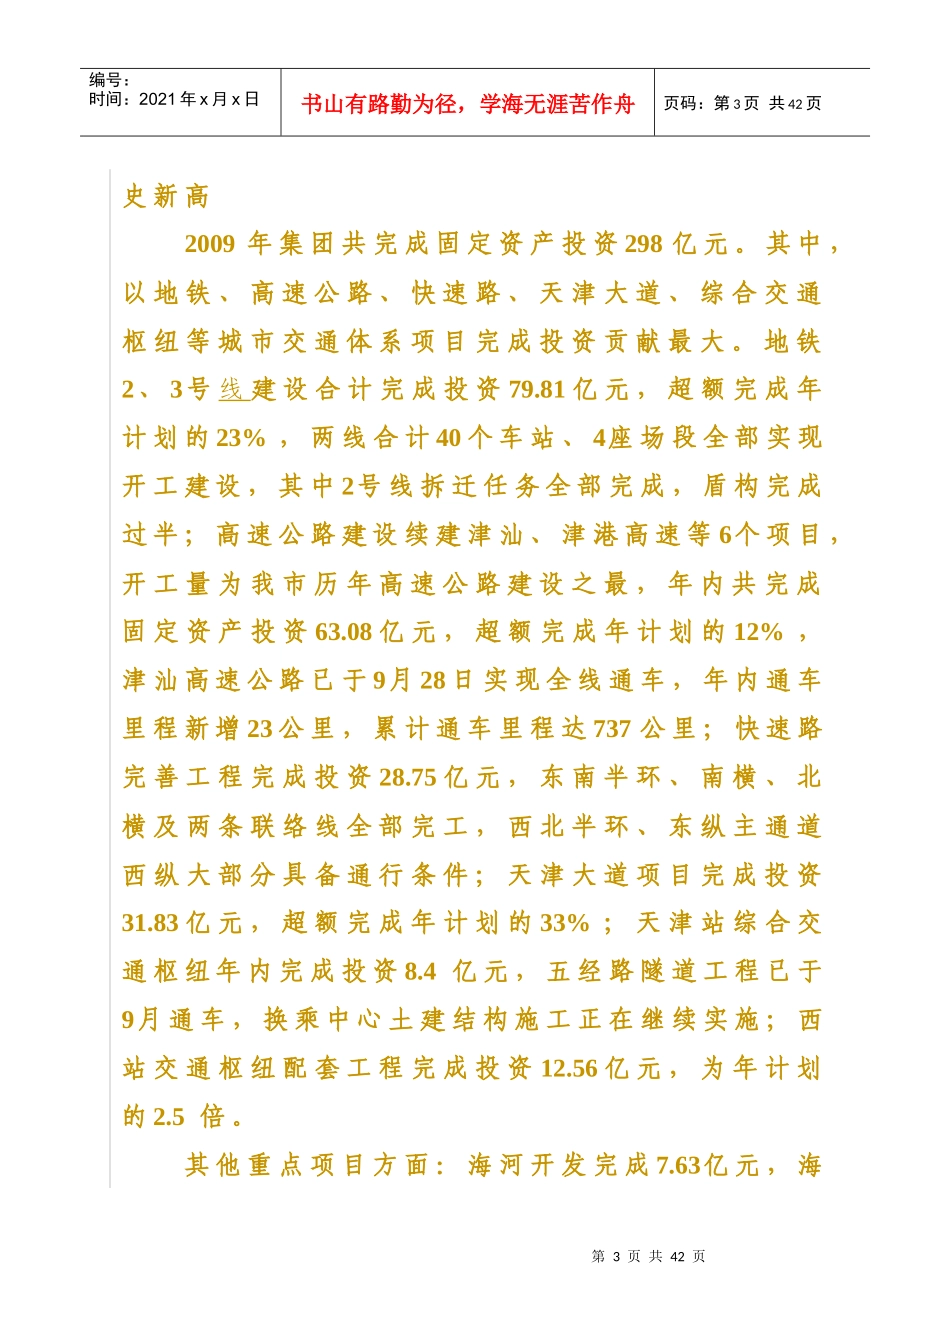 编号：
时间：2021年x月x日
书山有路勤为径，学海无涯苦作舟
页码：第3页 共42页
史新高
2009 年集团共完成固定资产投资298亿元。其中，
以地铁、高速公路、快速路、天津大道、综合交通
枢纽等城市交通体系项目完成投资贡献最大。地铁
2、3号线建设合计完成投资79.81亿元，超额完成年
计划的23%，两线合计40个车站、4座场段全部实现
开工建设，其中2号线拆迁任务全部完成，盾构完成
过半；高速公路建设续建津汕、津港高速等6个项目，
开工量为我市历年高速公路建设之最，年内共完成
固定资产投资63.08亿元，超额完成年计划的12%，
津汕高速公路已于9月28日实现全线通车，年内通车
里程新增23公里，累计通车里程达737公里；快速路
完善工程完成投资28.75亿元，东南半环、南横、北
横及两条联络线全部完工，西北半环、东纵主通道
西纵大部分具备通行条件；天津大道项目完成投资
31.83亿元，超额完成年计划的33%；天津站综合交
通枢纽年内完成投资8.4 亿元，五经路隧道工程已于
9月通车，换乘中心土建结构施工正在继续实施；西
站交通枢纽配套工程完成投资12.56亿元，为年计划
的2.5 倍。
其他重点项目方面：海河开发完成7.63亿元，海
第 3 页 共 42 页